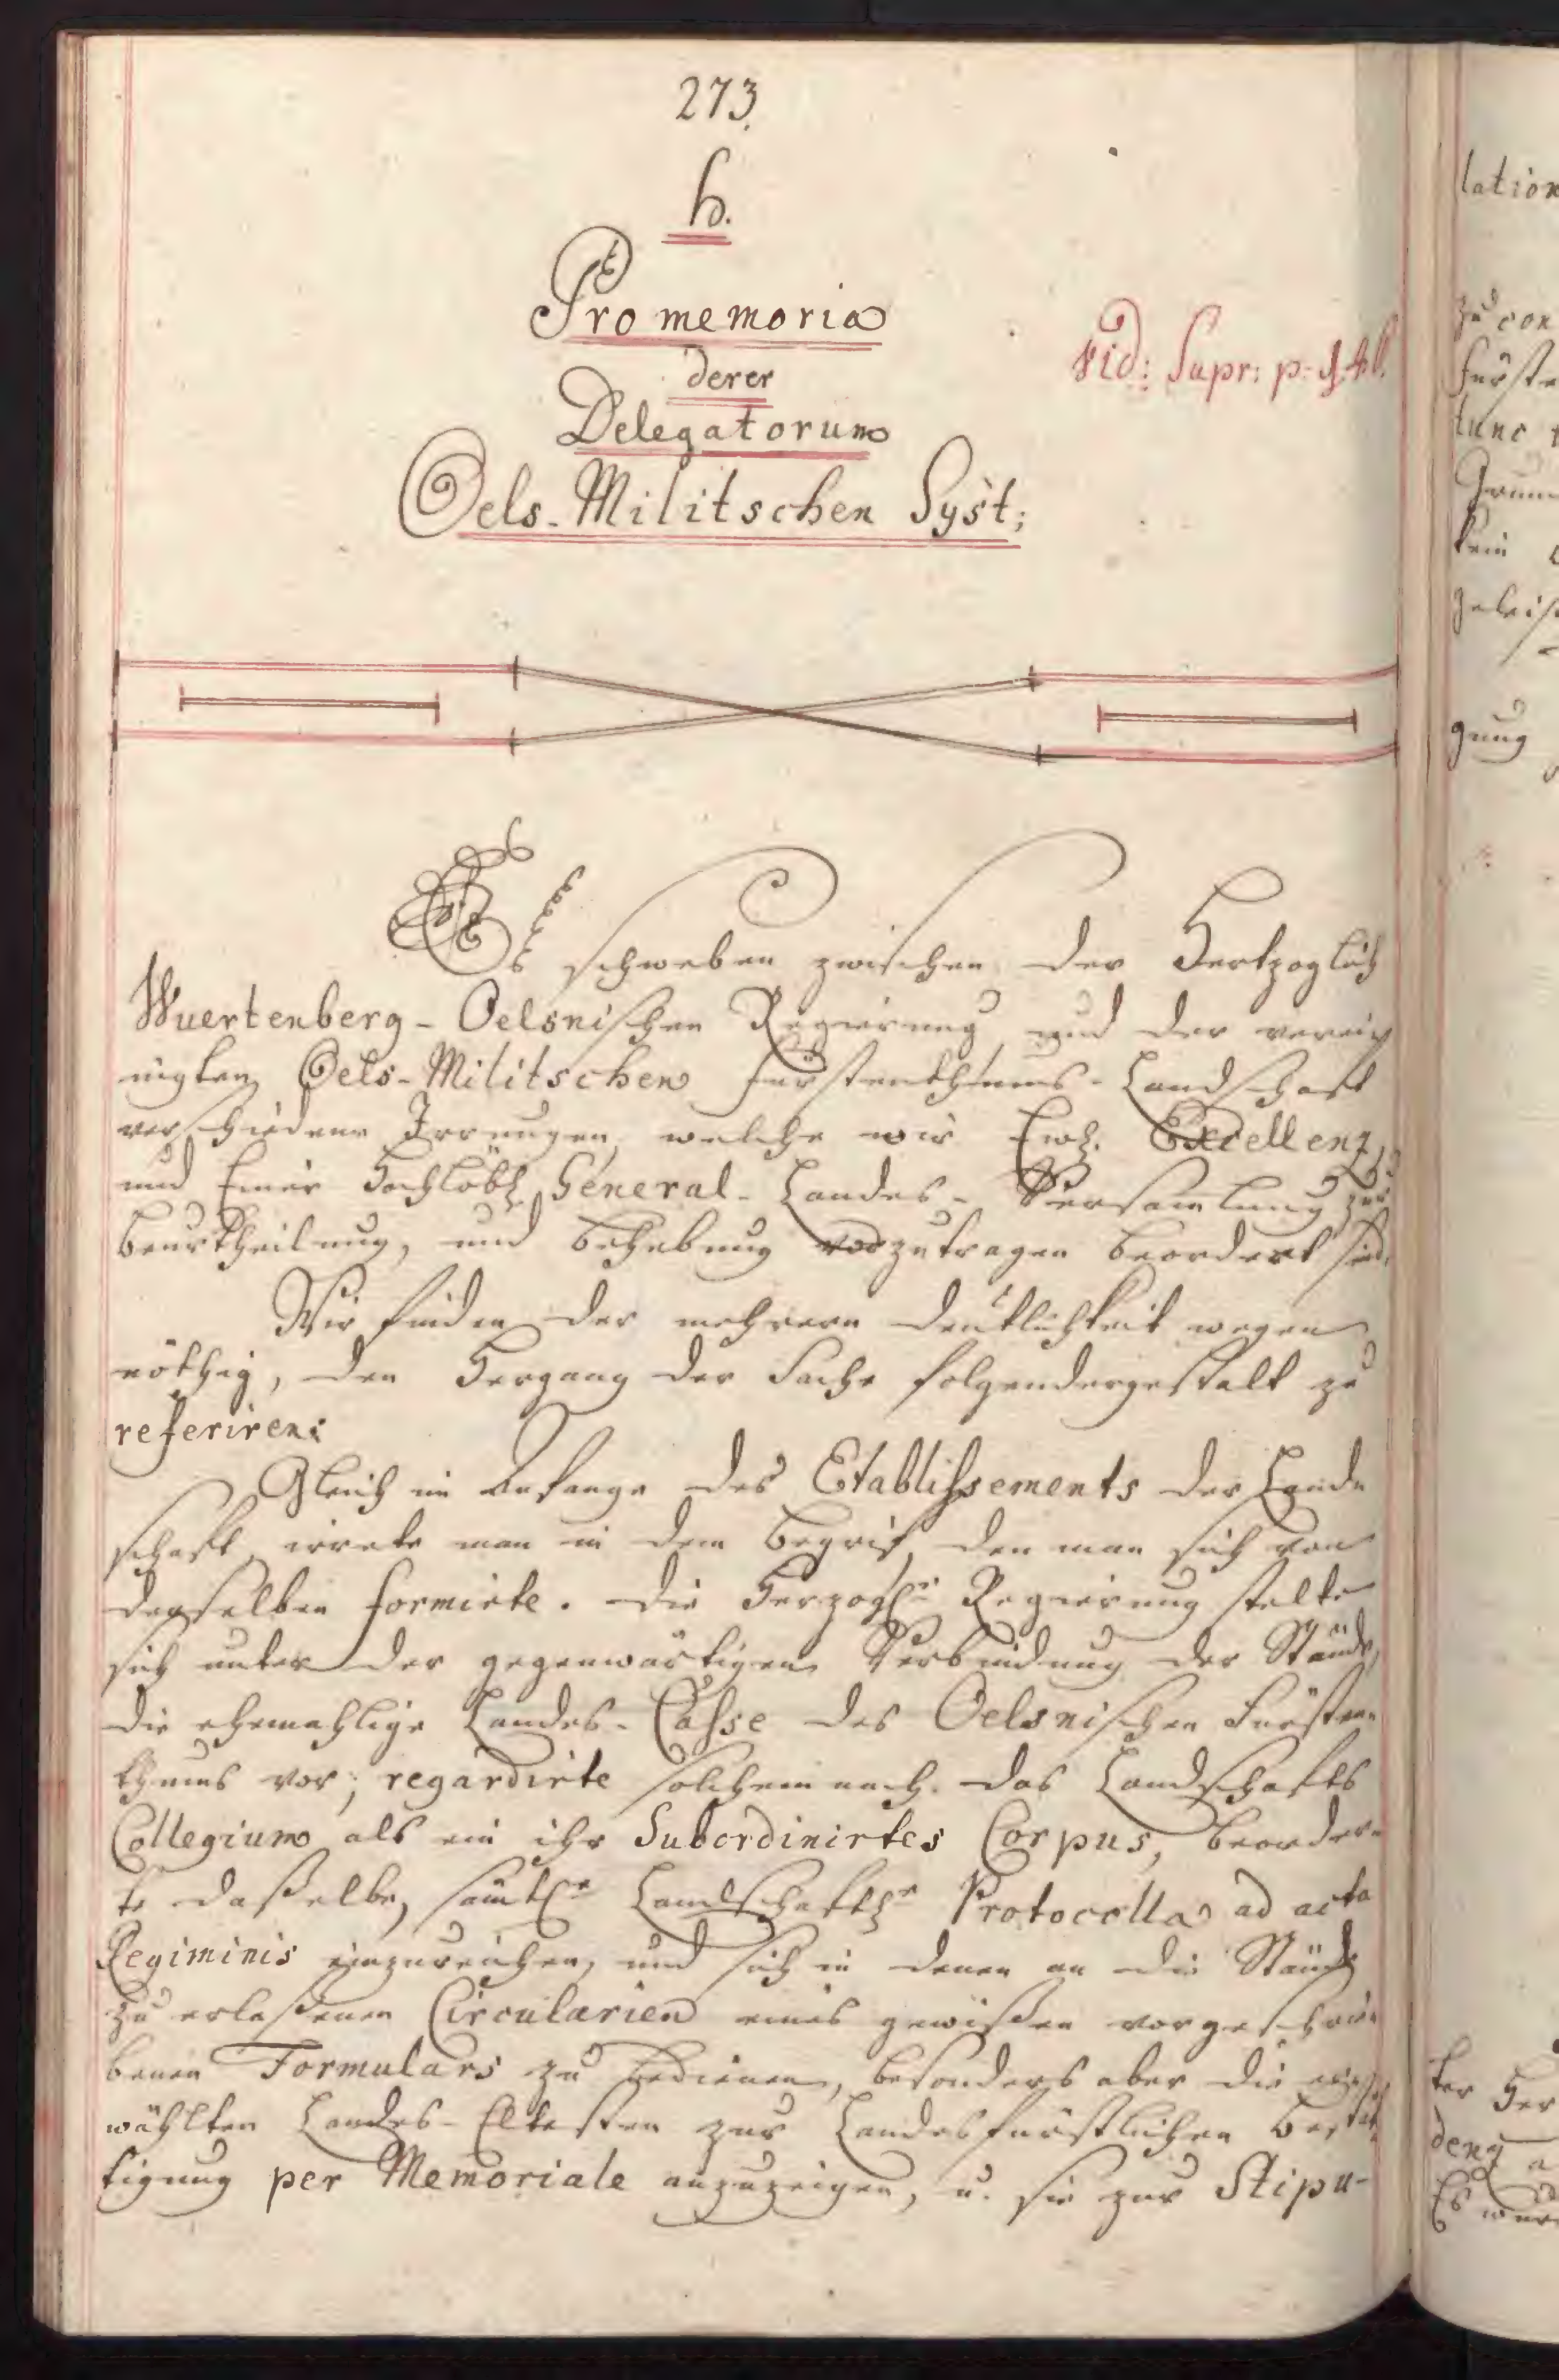 273.
h.
Pro memoria
derer
Delegatorum
Oels-Militschen Syst:
vid: Supr: p:
Es schweben zwischen der Hertzoglich
Wuertenberg-Oelsnischen Regierung und der verei¬
nigten Oels-Militschen Fürstenthums-Landschaft
verschiedene Irrungen, welche wir Ew. Excellenz,
und Einer Hochlöbl. General-Landes-Versamlung zur
Beurtheilung, und Behebung vorzutragen beordert sind.
Wir finden der mehrern Deutlichkeit wegen
nöthig, den Hergang der Sache folgendergestalt zu
referiren:
Gleich im Anfange des Etablissements der Land¬
schaft, irrete man in dem Begrif, den man sich von
derselben formirte. Die Herzogl. Regierung stelte
sich unter der gegenwärtigen Verbindung der Stände,
die ehemahlige Landes-Casse des Oelsnischen Fürsten¬
thums vor; regardirte solchemnach das Landschafts
Collegium als ein ihr Subordinirtes Corpus, beorder¬
te daßelbe, sämtl. Landschaftl. Protocolla ad acta
Regiminis einzureichen, und sich in denen an die Stände
zu erlaßenen Circularien eines gewißen vorgeschrie¬
benen Formulars zu bedienen, besonders aber die
wählten Landes-Eltesten zur Landesfürstlichen Bestät¬
tigung per Memoriale anzuzeigen, u. sie zur Stipu-
lation
zu con
Fürste
tunc
kein
gung
ter Her
denz
Es